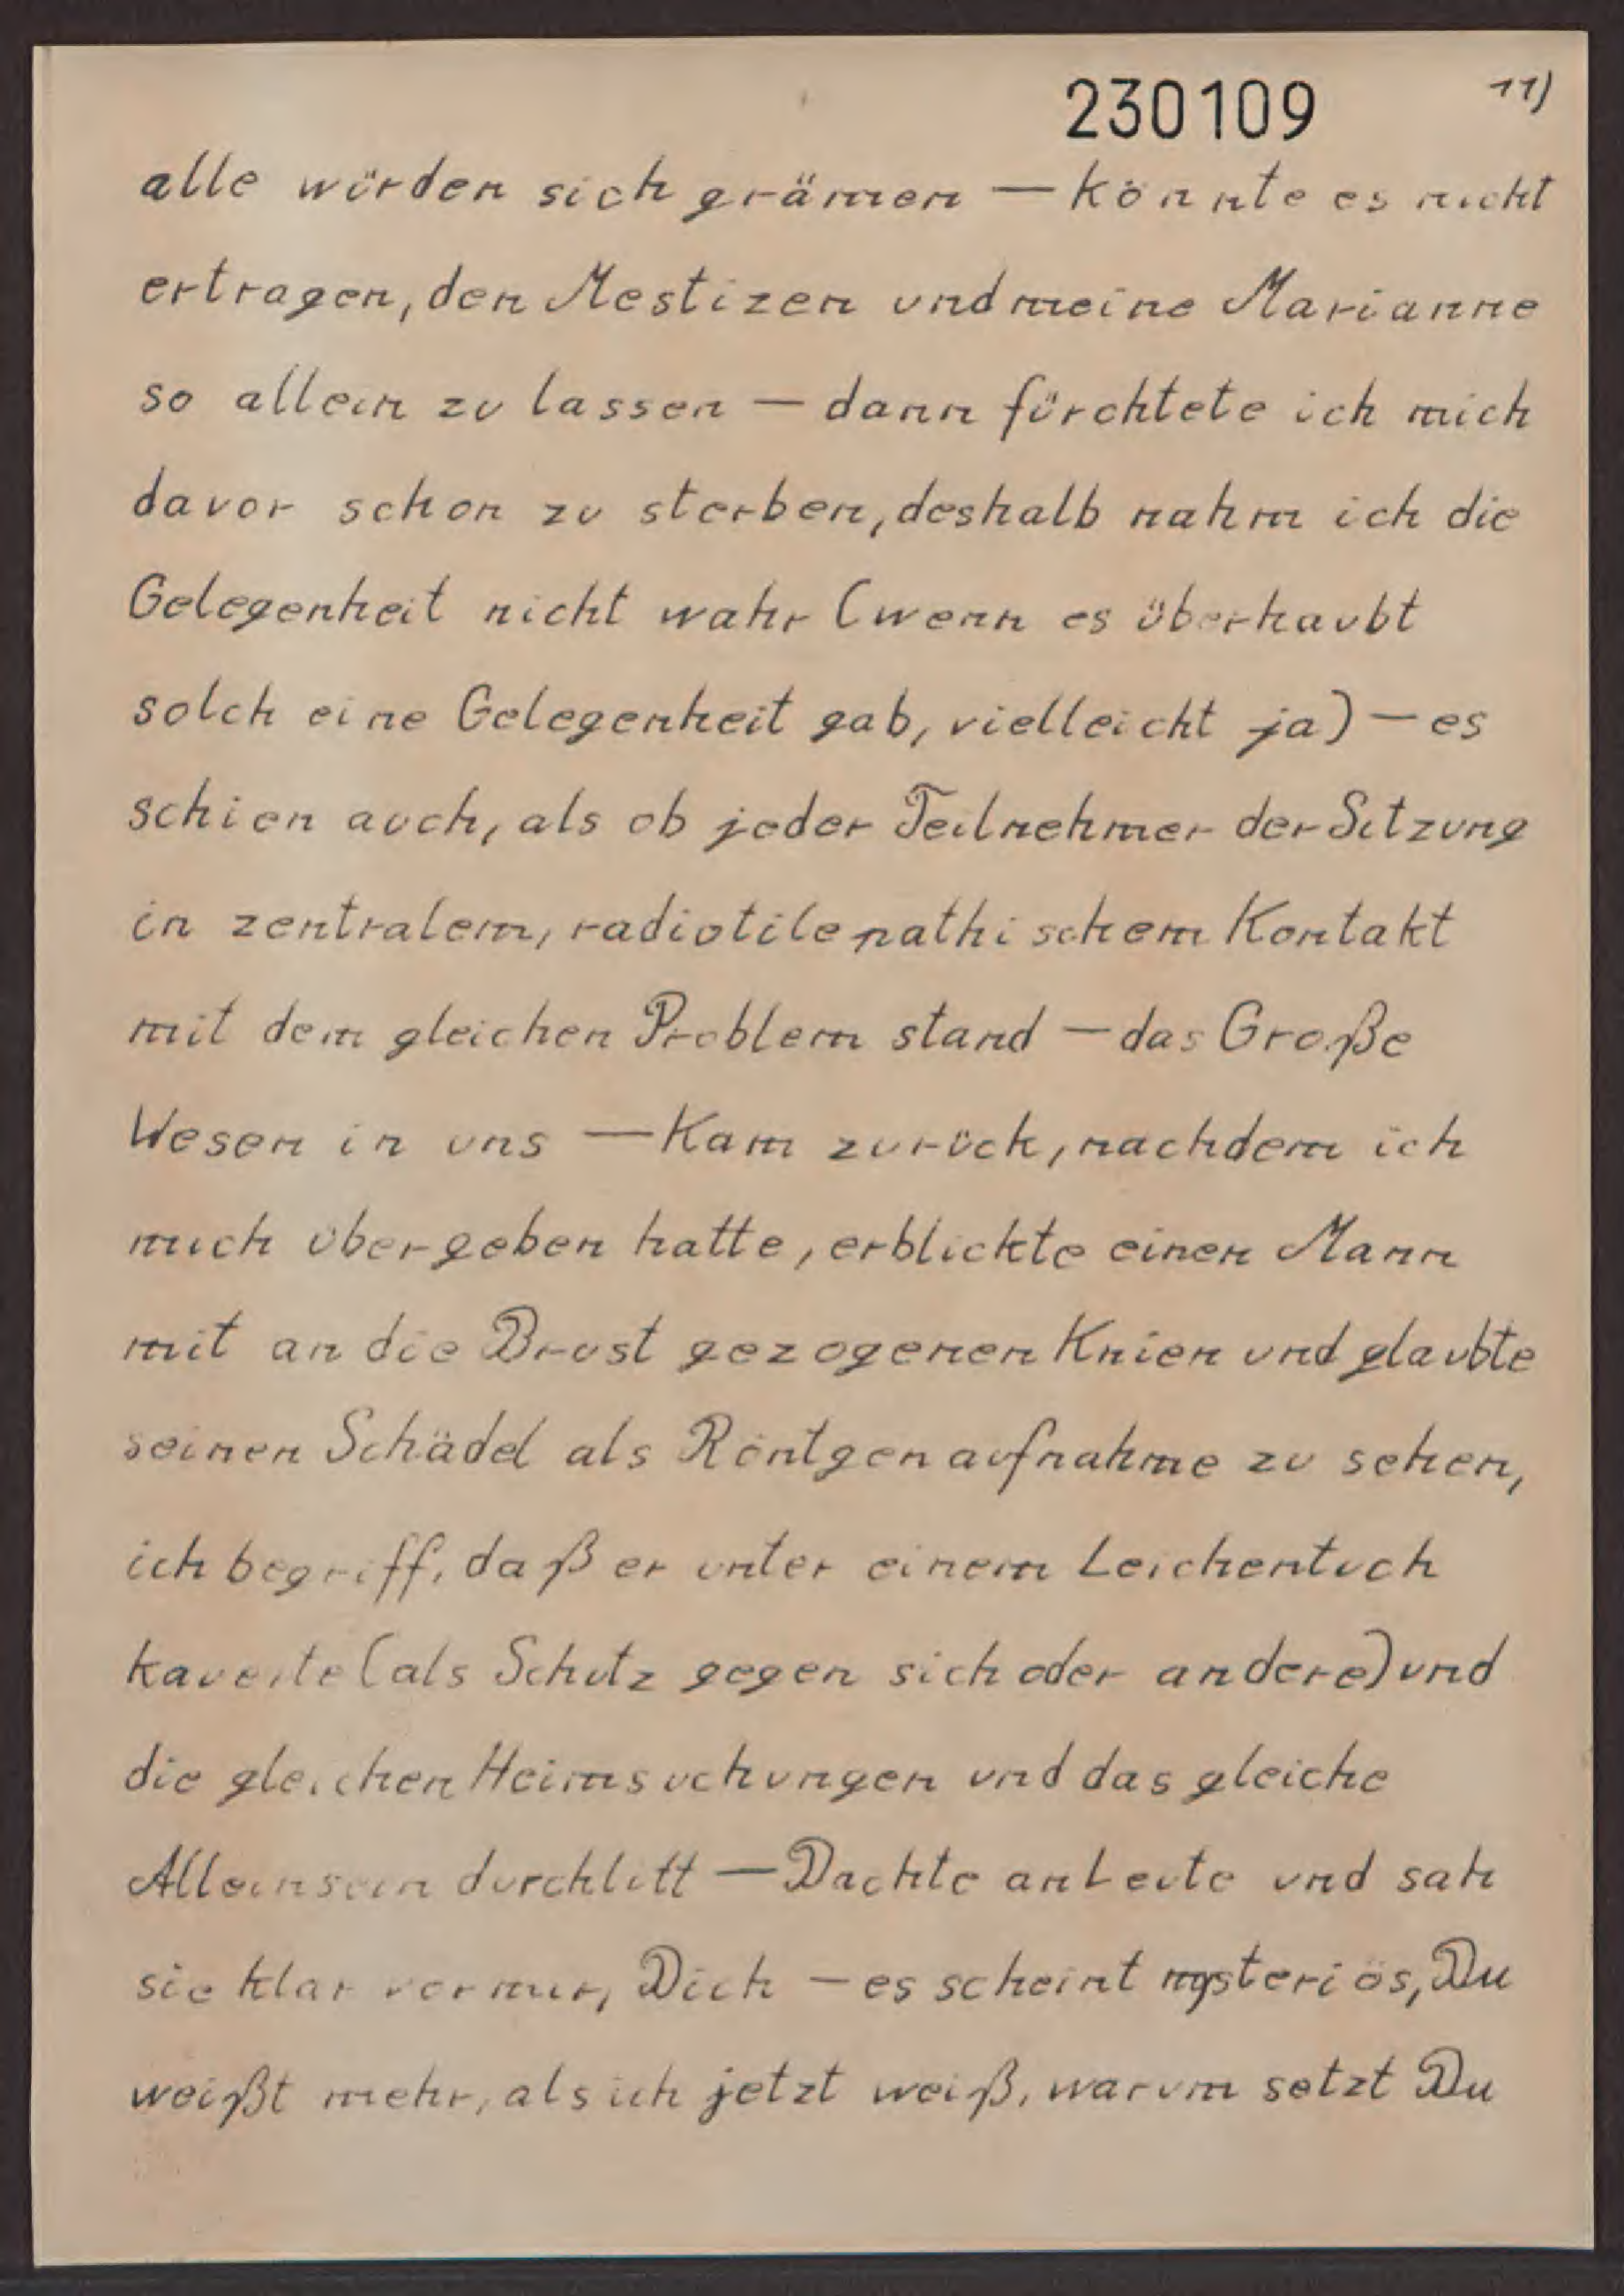 230109 11)
alle würden sich grämen — könnte es nicht
ertragen, den Mestizen und meine Marianne
so allein zu lassen — dann fürchtete ich mich
davor schon zu sterben, deshalb nahm ich die
Gelegenheit nicht wahr (wenn es überhaubt
solch eine Gelegenheit gab, vielleicht ja) — es
schien auch, als ob jeder Teilnehmer der Sitzung
in zentralem, radiotilepathischem Kontakt
mit dem gleichen Problem stand — das Große
Wesen in uns — Kam zurück, nachdem ich
mich übergeben hatte, erblickte einen Mann
mit an die Brust gezogenen Knien und glaubte
seinen Schädel als Röntgenaufnahme zu sehen,
ich begriff, daß er unter einem Leichentuch
kauerte (als Schutz gegen sich oder andere) und
die gleichen Heimsuchungen und das gleiche
Alleinsein durchlitt — Dachte an Leute und sah
sie klar vor mir, Dich — es scheint mysteriös, Du
weißt mehr, als ich jetzt weiß, warum setzt Du